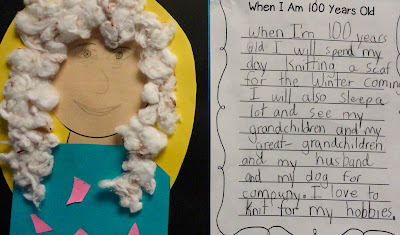 When I Am 100 Years Old
When I'm 100 years
old I will spend my
day knitting a scaf
for the winter coming
I will also sleep a
lot and see my
grandchildren and my
great-grandchildren
and my husband
and my dog for
company. I love to
knit for my hobbies.